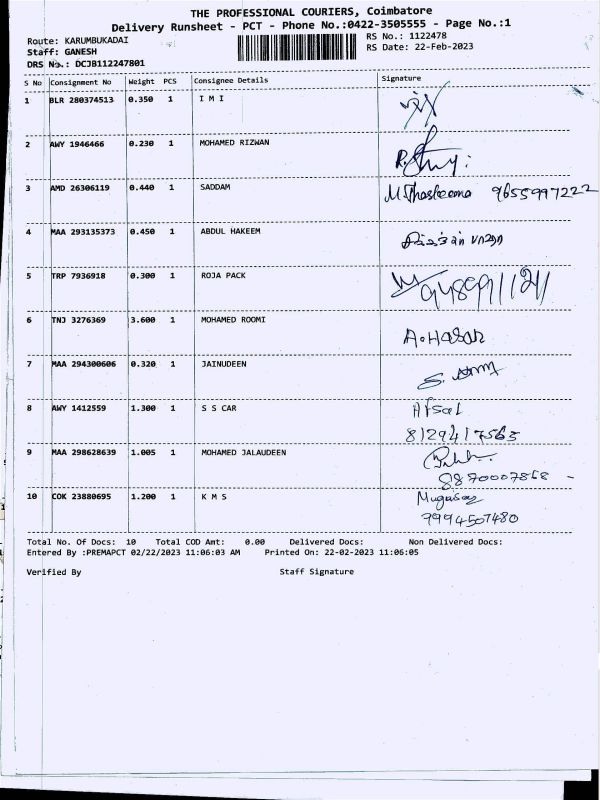 THE PROFESSIONAL COURIERS, Coimbatore
Delivery Runsheet - PCT - Phone No.:0422-3505555 - Page No.:1
Route: KARUMBUKADAI RS No.: 1122478
Staff: GANESH RS Date: 22-Feb-2023
DRS No.: DCJB112247801
S No Consignment No Weight PCS Consignee Details Signature
1 BLR 280374513 0.350 1 I M I
2 AWY 1946466 0.230 1 MOHAMED RIZWAN
3 AMD 26306119 0.440 1 SADDAM 9655997222
4 MAA 293135373 0.450 1 ABDUL HAKEEM
5 TRP 7936918 0.300 1 ROJA PACK
6 TNJ 3276369 3.600 1 MOHAMED ROOMI A.Hasan
7 MAA 294300606 0.320 1 JAINUDEEN
8 AWY 1412559 1.300 1 S S CAR Afsal
8129417563
9 MAA 298628639 1.005 1 MOHAMED JALAUDEEN
8870007868
10 COK 23880695 1.200 1 K M S
9994507480
Total No. Of Docs: 10 Total COD Amt: 0.00 Delivered Docs: Non Delivered Docs:
Entered By :PREMAPCT 02/22/2023 11:06:03 AM Printed On: 22-02-2023 11:06:05
Verified By Staff Signature